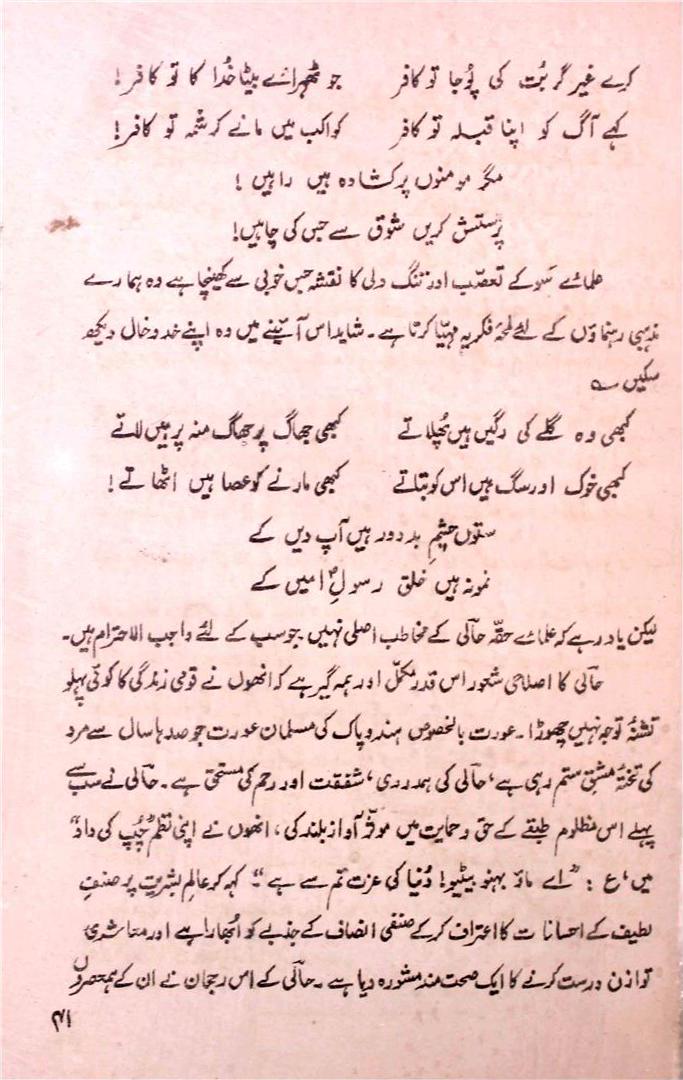 کرے غیر گر بُت کی پُوجا تو کافر جو ٹھہرائے بیٹا خُدا کا تو کافر!
کہے آگ کو اپنا قبلہ تو کافر کواکب میں مانے کرشمہ تو کافر!
مگر مومنوں پر کشادہ ہیں راہیں!
پرستش کریں شوق سے جس کی چاہیں!
علمائے سُو کے تعصّب اور تنگ دلی کا نقشہ جس خوبی سے کھینچا ہے وہ ہمارے
مذہبی رہنماؤں کے لئے لمحۂ فکریہ مہیّا کرتا ہے۔ شاید اس آئینے میں وہ اپنے خد و خال دیکھ
سکیں ؎
کبھی وہ گلے کی رگیں ہیں پھُلاتے کبھی جھاگ پر جھاگ منہ پر ہیں لاتے
کبھی خوک اور سگ ہیں اس کو بتاتے کبھی مارنے کو عصا ہیں اٹھاتے!
ستوں چشمِ بد دور ہیں آپ دیں کے
نمونہ ہیں خلق رسولِؐ امیں کے
لیکن یاد رہے کہ علمائے حقّہ حالؔی کے مخاطب اصلی نہیں۔ جو سب کے لئے واجب الاحترام ہیں۔
حالؔی کا اصلاحی شعور اس قدر مکمّل اور ہمہ گیر ہے کہ انھوں نے قومی زندگی کا کوئی پہلو
تشنۂ توجہ نہیں چھوڑا۔ عورت بالخصوص ہند و پاک کی مسلمان عورت جو صدہا سال سے مرد
کی تختۂ مشقِ ستم رہی ہے، حالؔی کی ہمدردی، شفقت اور رحم کی مستحق ہے۔ حالؔی نے سب سے
پہلے اس مظلوم طبقے کے حق و حمایت میں موثّر آواز بلند کی، انھوں نے اپنی نظم "چُپ کی داد"
میں، ع : "اے ماؤ بہنو بیٹیو! دُنیا کی عزت تم سے ہے"۔ کہہ کر عالمِ بشریت پر صنفِ
لطیف کے احسانات کا اعتراف کرکے صنفی انصاف کے جذبے کو اُبھارا ہے اور معاشری
توازن درست کرنے کا ایک صحت مند مشورہ دیا ہے۔ حالؔی کے اس رجحان نے ان کے ہمعصروں
۴۱